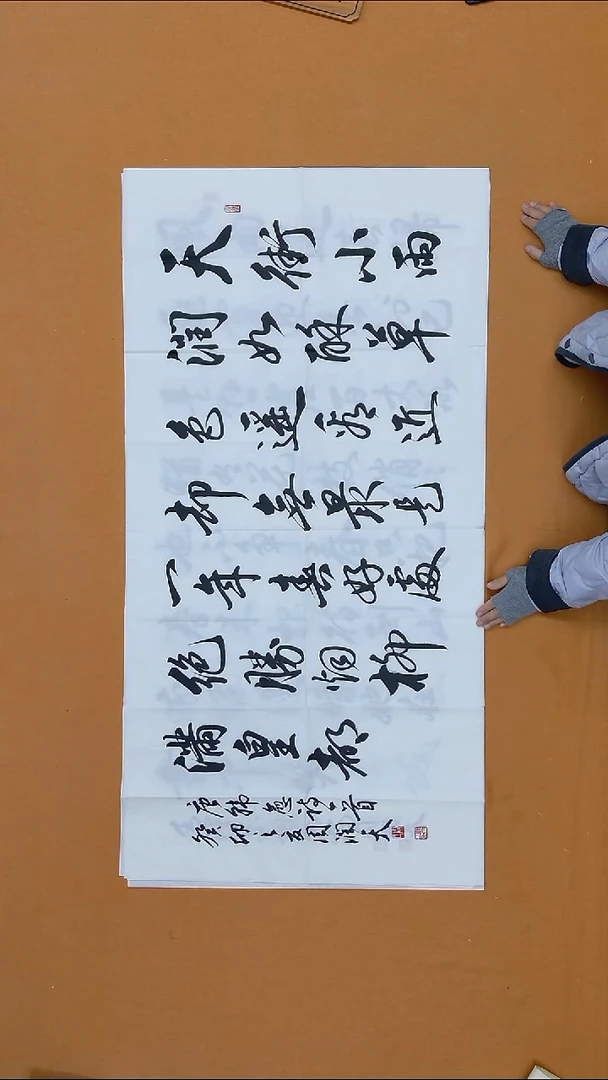 天街小雨
润如酥草
色遥看近
却無最是
一年春好處
绝勝烟柳
满皇都
唐韩愈诗一首
癸卯之夏周润天